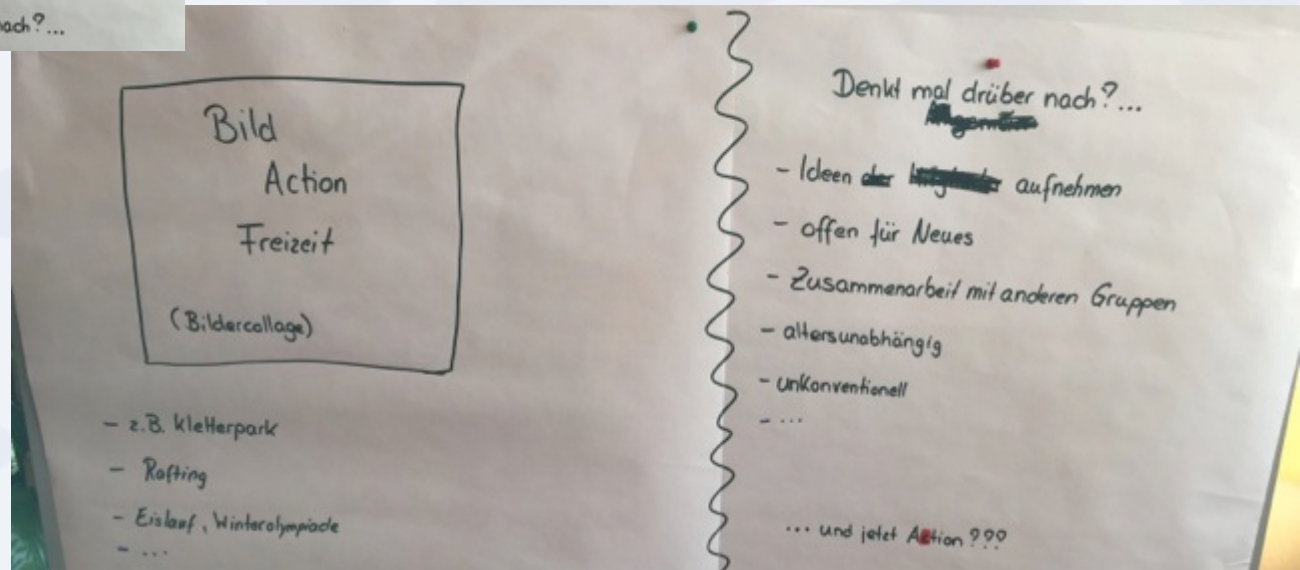 nach?...
Bild
Action
Freizeit
(Bildercollage)
- z.B. Kletterpark
- Rafting
- Eislauf, Winterolympiade
- ...
Denkt mal drüber nach?...
- Ideen aufnehmen
- offen für Neues
- Zusammenarbeit mit anderen Gruppen
- altersunabhängig
- unkonventionell
- ...
... und jetzt Action???